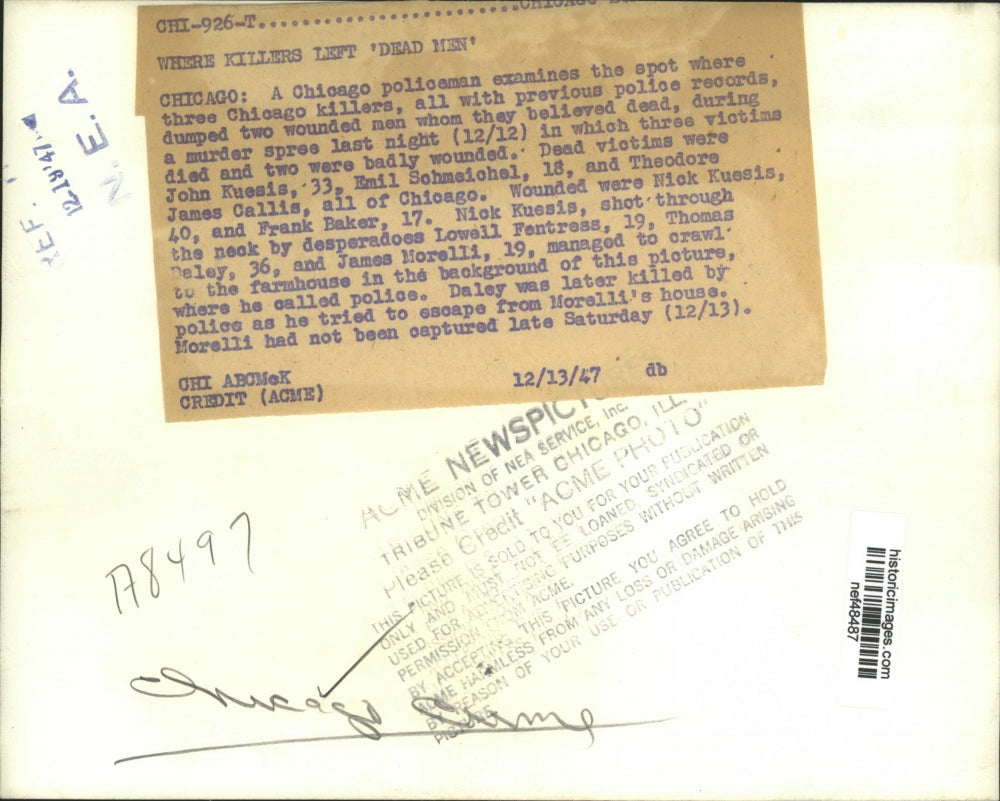 CHI-926-T..............................CHICAGO
WHERE KILLERS LEFT 'DEAD MEN'
CHICAGO: A Chicago policeman examines the spot where
three Chicago killers, all with previous police records,
dumped two wounded men whom they believed dead, during
a murder spree last night (12/12) in which three victims
died and two were badly wounded. Dead victims were
John Kuesis, 33, Emil Schmeichel, 18, and Theodore
James Callis, all of Chicago. Wounded were Nick Kuesis,
40, and Frank Baker, 17. Nick Kuesis, shot through
the neck by desperadoes Lowell Fentress, 19, Thomas
Daley, 36, and James Morelli, 19, managed to crawl
to the farmhouse in the background of this picture,
where he called police. Daley was later killed by
police as he tried to escape from Morelli's house.
Morelli had not been captured late Saturday (12/13).
CHI ABCMcK 12/13/47 db
CREDIT (ACME)
REF.
12-19-47
N. E. A.
ACME NEWSPICTU
DIVISION OF NEA SERVICE, Inc.
TRIBUNE TOWER CHICAGO, ILL.
Please Credit "ACME PHOTO"
THIS PICTURE IS SOLD TO YOU FOR YOUR PUBLICATION
ONLY AND MUST NOT BE LOANED, SYNDICATED OR
USED FOR ADVERTISING PURPOSES WITHOUT WRITTEN
PERMISSION FROM ACME.
BY ACCEPTING THIS PICTURE YOU AGREE TO HOLD
ACME HARMLESS FROM ANY LOSS OR DAMAGE ARISING
BY REASON OF YOUR USE OR PUBLICATION OF THIS
PICTURE
A8497
Chicago Crime
historicimages.com
nef48487